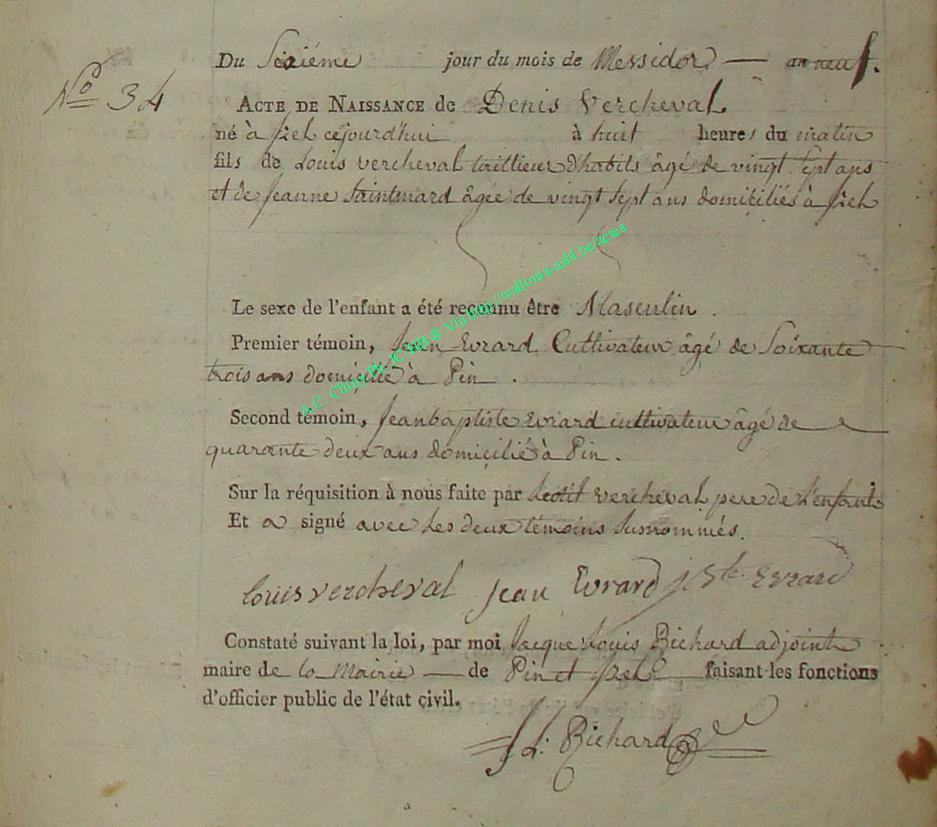 Du Sixiéme jour du mois de Messidor — an neuf.
No 34
ACTE DE NAISSANCE de Denis Vercheval
né à Izel cejourdhui à huit heures du matin
fils de Louis vercheval taillieur d'habits âgé de vingt Sept ans
et de Jeanne Saintmard âgée de vingt Sept ans domiciliés à Izel
Le sexe de l'enfant a été reconnu être Masculin.
Premier témoin, Jean Evrard Cultivateur âgé de Soixante
trois ans domicilié à Pin.
Second témoin, Jeanbaptiste Evrard cultivateur âgé de
quarante deux ans domicilié à Pin.
Sur la réquisition à nous faite par vercheval pere de L'enfant
Et a signé avec Les deux témoins Susnommés.
louis vercheval Jean Evrard JBte Evrard
Constaté suivant la loi, par moi Jacque Louis Richard adjoint
maire de la Mairie — de Pin et Izel faisant les fonctions
d'officier public de l'état civil.
J L: Richard
A.C. Chiny Ph. JC HD ® Via http://wallonia-asbl.be/actes